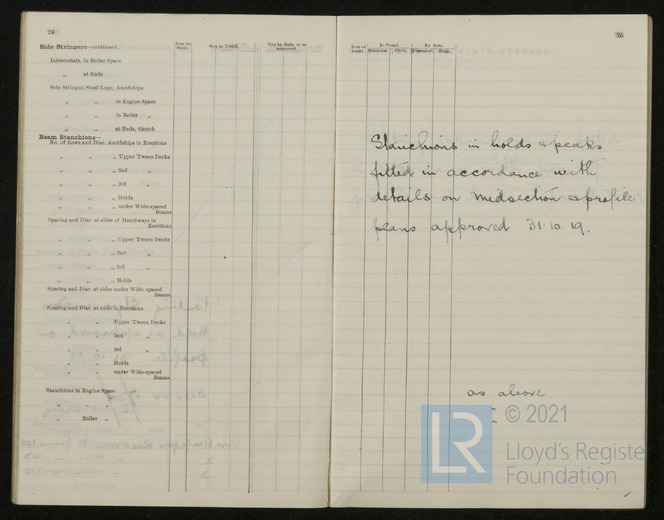 24
Side Stringers—continued.
Iron or Steel.
Size in Vessel.
Size by Rule, or as approved.
Intercostals, in Boiler Space
„ at Ends
Side Stringer, Shell Lugs, Amidships
„ „ in Engine Space
„ „ in Boiler „
„ „ at Ends, Sketch
Beam Stanchions—
No. of Rows and Diar. Amidships in Erections
„ „ „ Upper 'Tween Decks
„ „ „ 2nd „
„ „ „ 3rd „
„ „ „ Holds
„ „ „ under Wide-spaced Beams
Spacing and Diar. at sides of Hatchways in Erections
„ „ „ Upper 'Tween Decks
„ „ „ 2nd „
„ „ „ 3rd „
„ „ „ Holds
Spacing and Diar. at sides under Wide-spaced Beams
Spacing and Diar. at ends in Erections
„ „ Upper 'Tween Decks
„ „ 2nd „
„ „ 3rd „
„ „ Holds
„ „ under Wide-spaced Beams
Stanchions in Engine Space
„ Boiler „
25
Iron or Steel.
In Vessel.
By Rule.
Stanchions in holds & peaks
fitted in accordance with
details on midsection & profile
plans approved 31.10.19.
as above
LR
© 2021
Lloyd's Register
Foundation